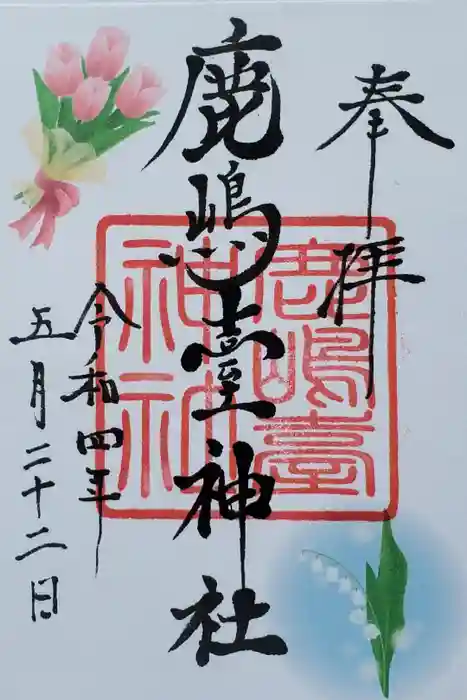 奉拝
鹿嶋臺神社
鹿嶋臺神社
令和四年
五月二十二日